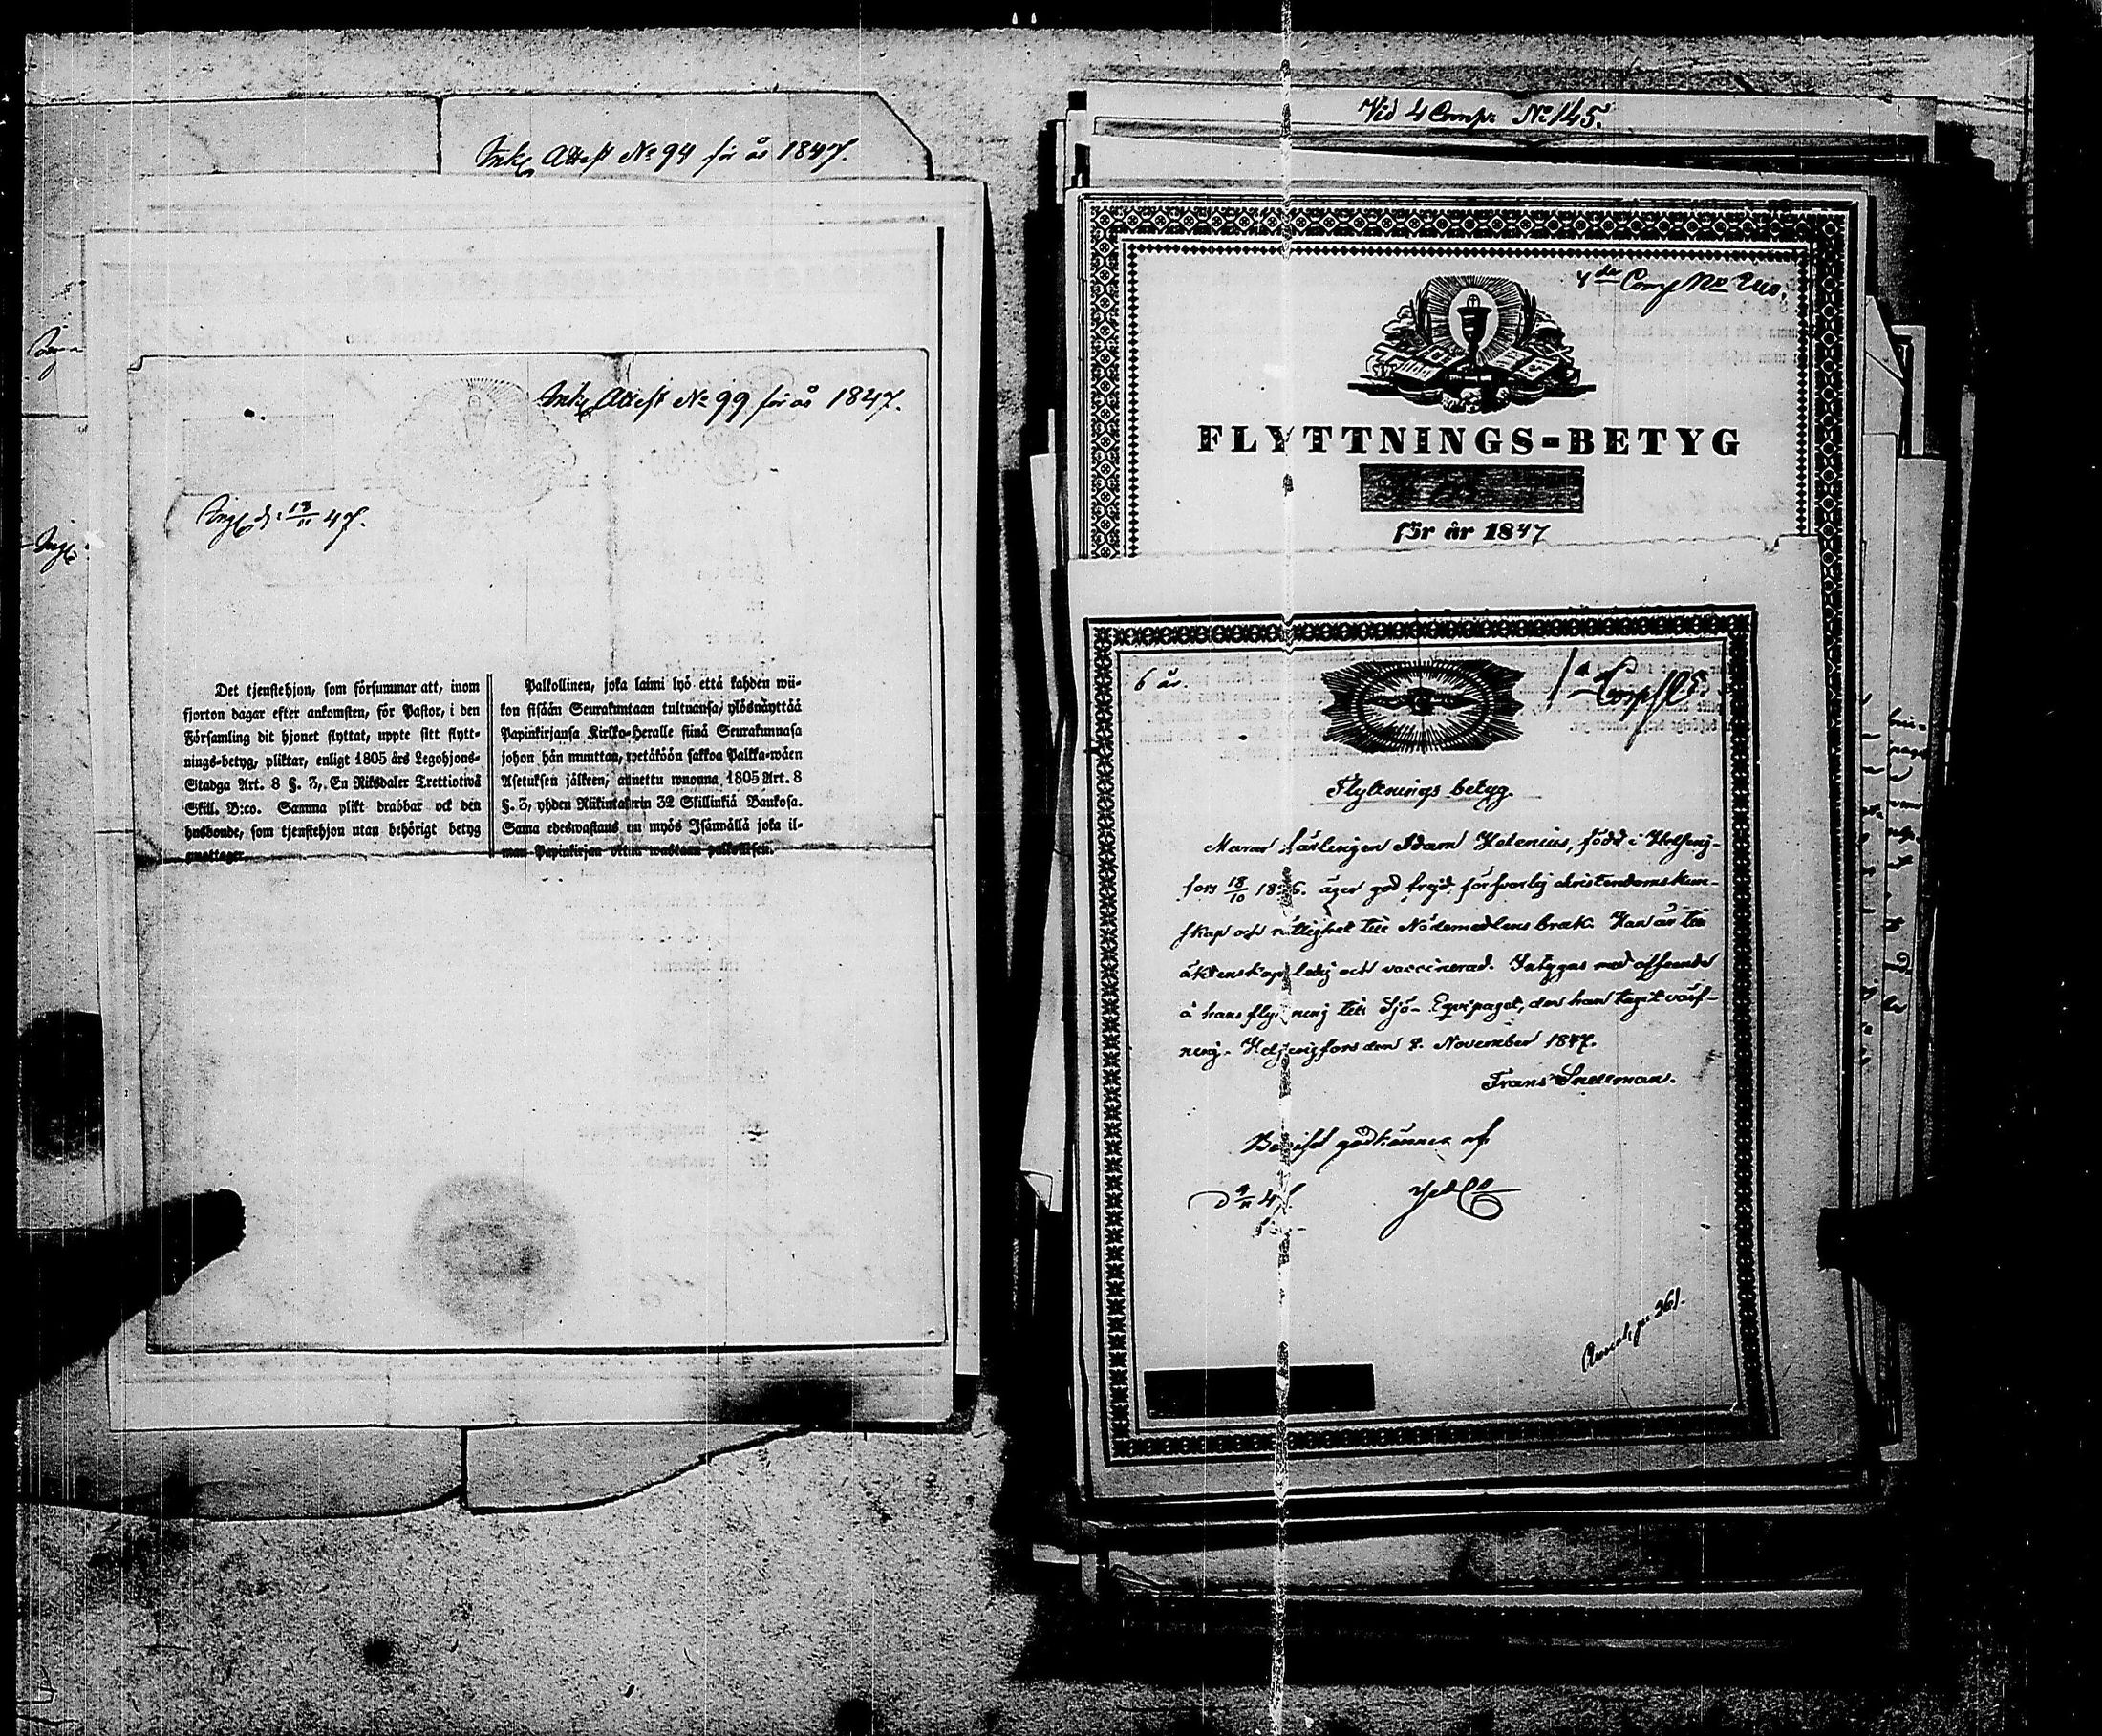 Ink. Attest No 94 för år 1847.
Ink. Attest No 99 för år 1847.
Ingf. d: 13/11 47.
Det tjenstehjon, som försummar att, inom
fjorton dagar efter ankomsten, för Pastor, i den
Församling dit hjonet flyttat, uppte sitt flytt-
nings-betyg, pliktar, enligt 1805 års Legohjons-
Stadga Art. 8 §. 3, En Riksdaler Trettiotwå
Skill. B:co. Samma plikt drabbar ock den
husbonde, som tjenstehjon utan behörigt betyg
emottager.
Palkollinen, joka laimi lyö että kahden wii-
kon sisään Seurakuntaan tultuansa, ylösnäyttää
Papinkirjansa Kirkko-Heralle siinä Seurakunnasa
johon hän muuttaa, wetäköön sakkoa Palkka-wäen
Asetuksen jälkeen, annettu wuonna 1805 Art. 8
§. 3, yhden Riikintalerin 32 Skillinkiä Bankosa.
Sama edeswastaus on myös Isännällä joka il-
man Papinkirjan ottaa wastaan palkollisen.
Vid 4 Comp: No 145.
4de Comp No
FLYTTNINGS=BETYG
för år 1847
6 år.
1a Comp
Flyttnings betyg.
Lärlingen Adam Helenius, född i Helsing-
fors 18/10 äger god frejd, försvarlig christendomskun-
skap och rättighet till Nådemedlens bruk. Han är till
äktenskap ledig och vaccinerad. Intygas med afseende
å hans flyttning till Sjö-Equipaget, der han tagit värf-
ning. Helsingfors den 8. November 1847.
Frans Snellman.
Beviset godkännes af
D 9/11 47.
361.